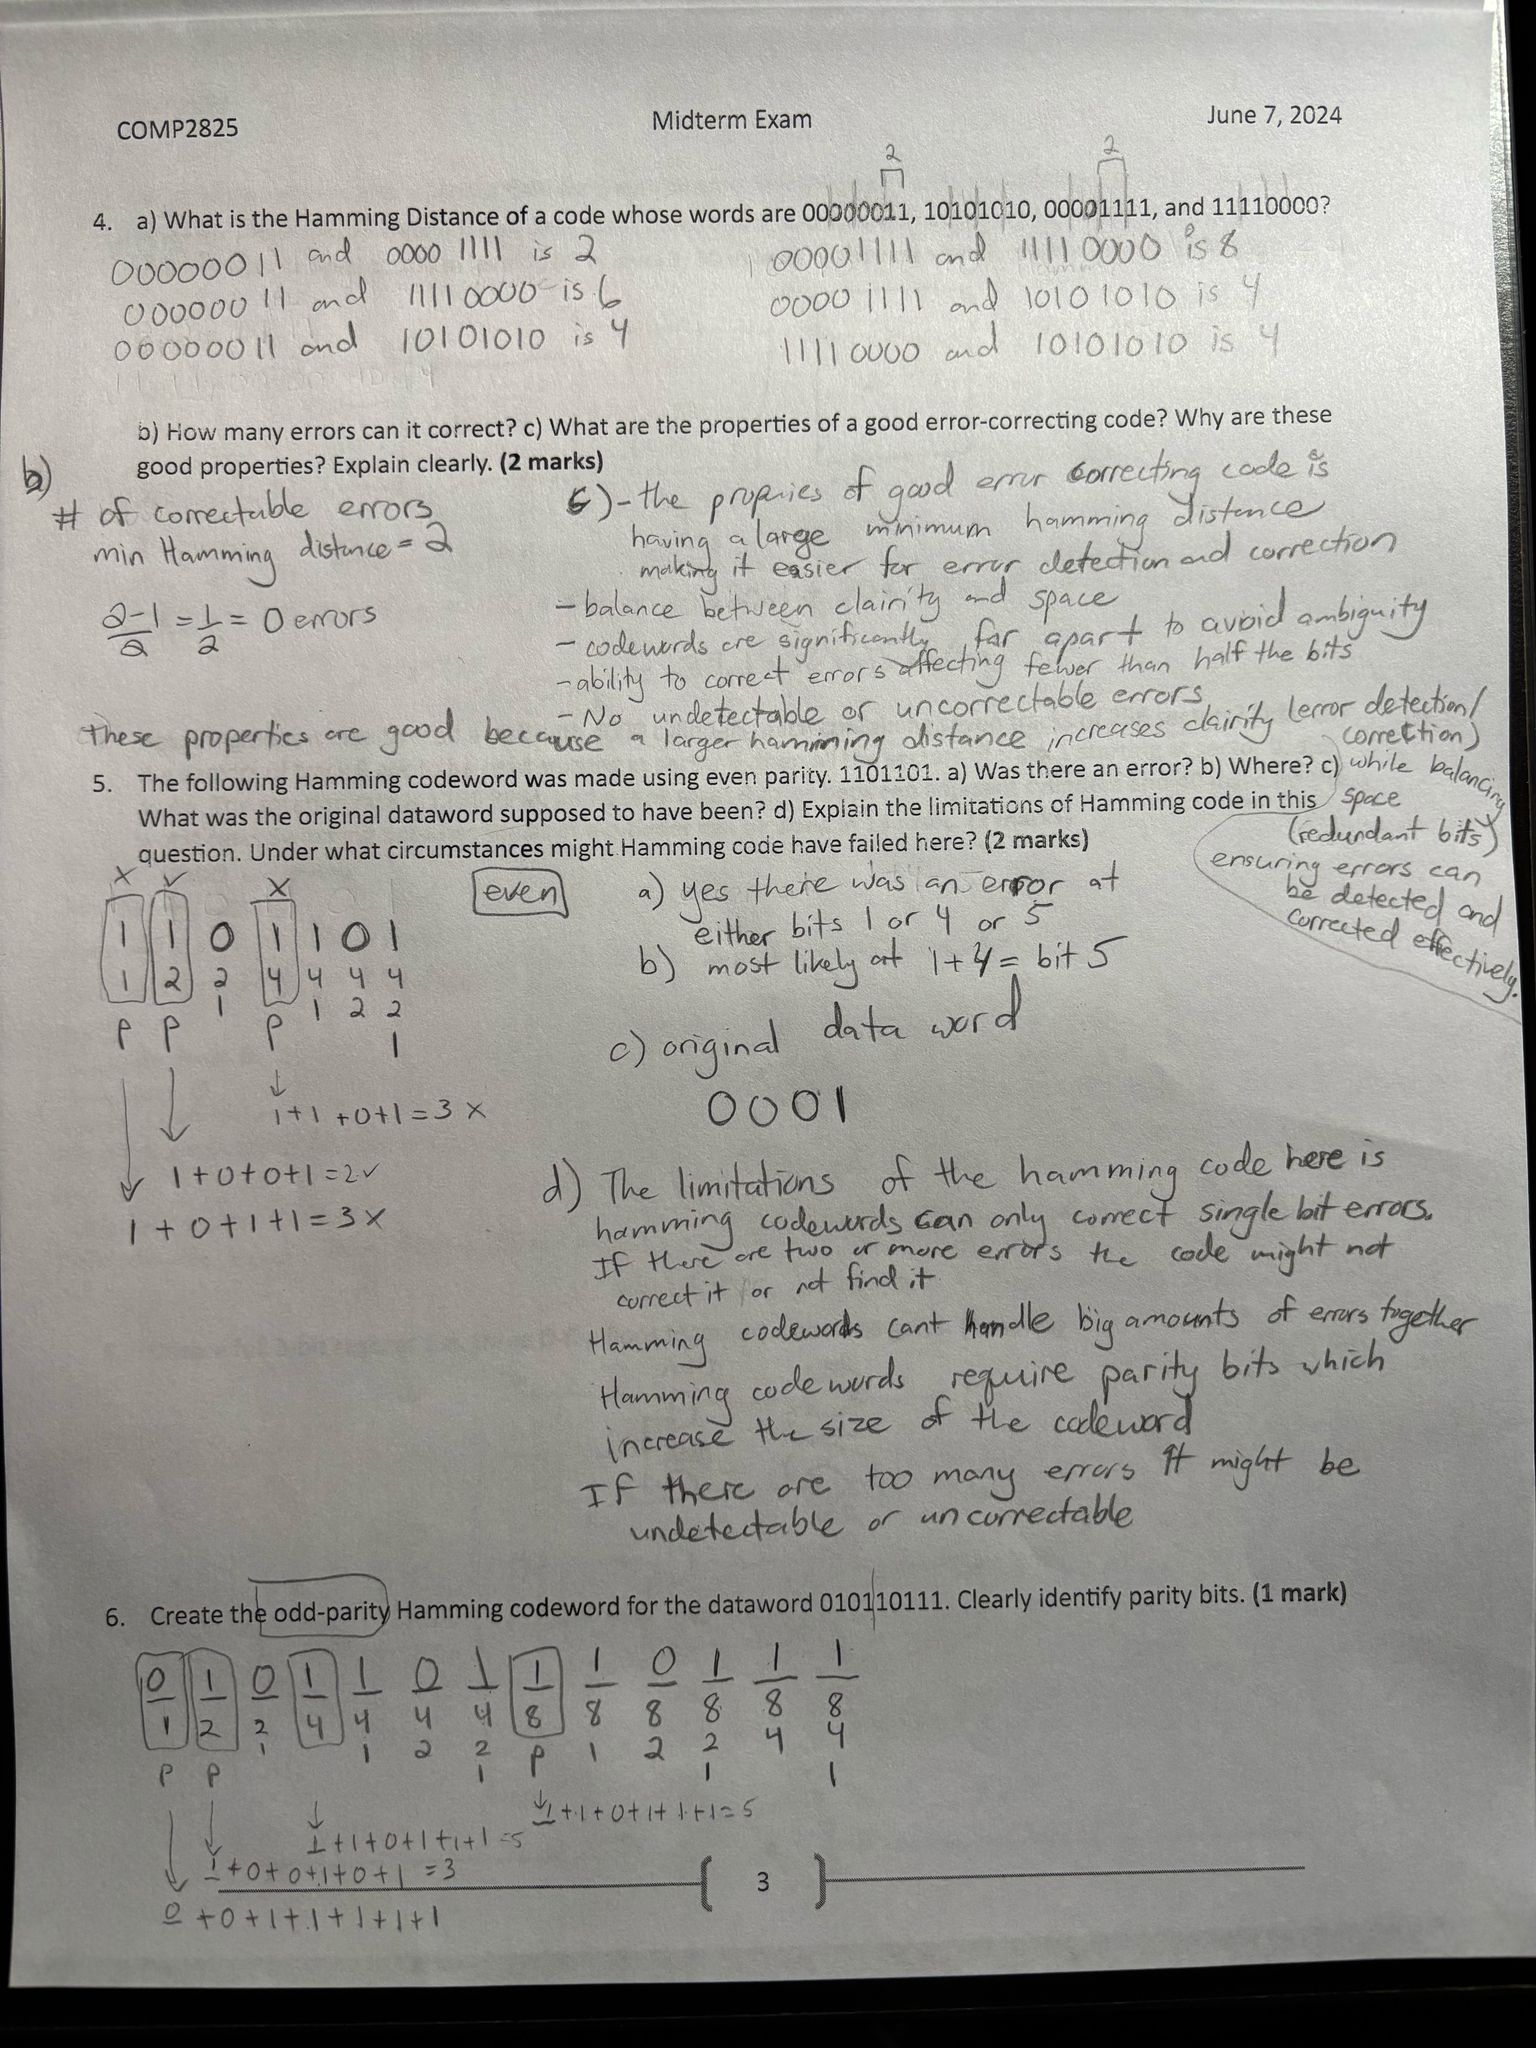 COMP2825 Midterm Exam June 7, 2024
2 2
4. a) What is the Hamming Distance of a code whose words are 00000011, 10101010, 00001111, and 11110000?
00000011 and 0000 1111 is 2
000000 11 and 11110000 is 6
00000011 and 10101010 is 4
00001111 and 1111 0000 is 8
0000 1111 and 10101010 is 4
11110000 and 10101010 is 4
b) How many errors can it correct? c) What are the properties of a good error-correcting code? Why are these
good properties? Explain clearly. (2 marks)
b)
# of correctable errors
min Hamming distance = 2
2-1/2 = 1/2 = 0 errors
c) - the propries of good error correcting code is
having a large minimum hamming distance
making it easier for error detection and correction
- balance between clairity and space
- codewords are significantly far apart to avoid ambiguity
- ability to correct errors affecting fewer than half the bits
- No undetectable or uncorrectable errors
These properties are good because a larger hamming distance increases clairity (error detection/
correction)
while balancing
space
(redundant bits)
ensuring errors can
be detected and
corrected effectively.
5. The following Hamming codeword was made using even parity. 1101101. a) Was there an error? b) Where? c)
What was the original dataword supposed to have been? d) Explain the limitations of Hamming code in this
question. Under what circumstances might Hamming code have failed here? (2 marks)
x ✓ x
1 1 0 1 1 0 1
1 2 2 4 4 4 4
1 1 2 2
P P P 1
1+1+0+1=3 x
1+0+0+1=2✓
1+0+1+1=3x
even
a) yes there was an error at
either bits 1 or 4 or 5
b) most likely at 1+4= bit 5
c) original data word
0001
d) The limitations of the hamming code here is
hamming codewords can only correct single bit errors.
If there are two or more errors the code might not
correct it or not find it
Hamming codewords cant handle big amounts of errors together
Hamming codewords require parity bits which
increase the size of the codeword
If there are too many errors it might be
undetectable or uncorrectable
6. Create the odd-parity Hamming codeword for the dataword 010110111. Clearly identify parity bits. (1 mark)
0 1 0 1 1 0 1 1 1 0 1 1 1
1 2 2 4 4 4 4 8 8 8 8 8 8
1 1 2 2 P 1 2 2 4 4
P P 1 1 1
1+1+0+1+1+1=5
1+1+0+1+1+1=5
1+0+0+1+0+1=3
0+0+1+1+1+1+1
3